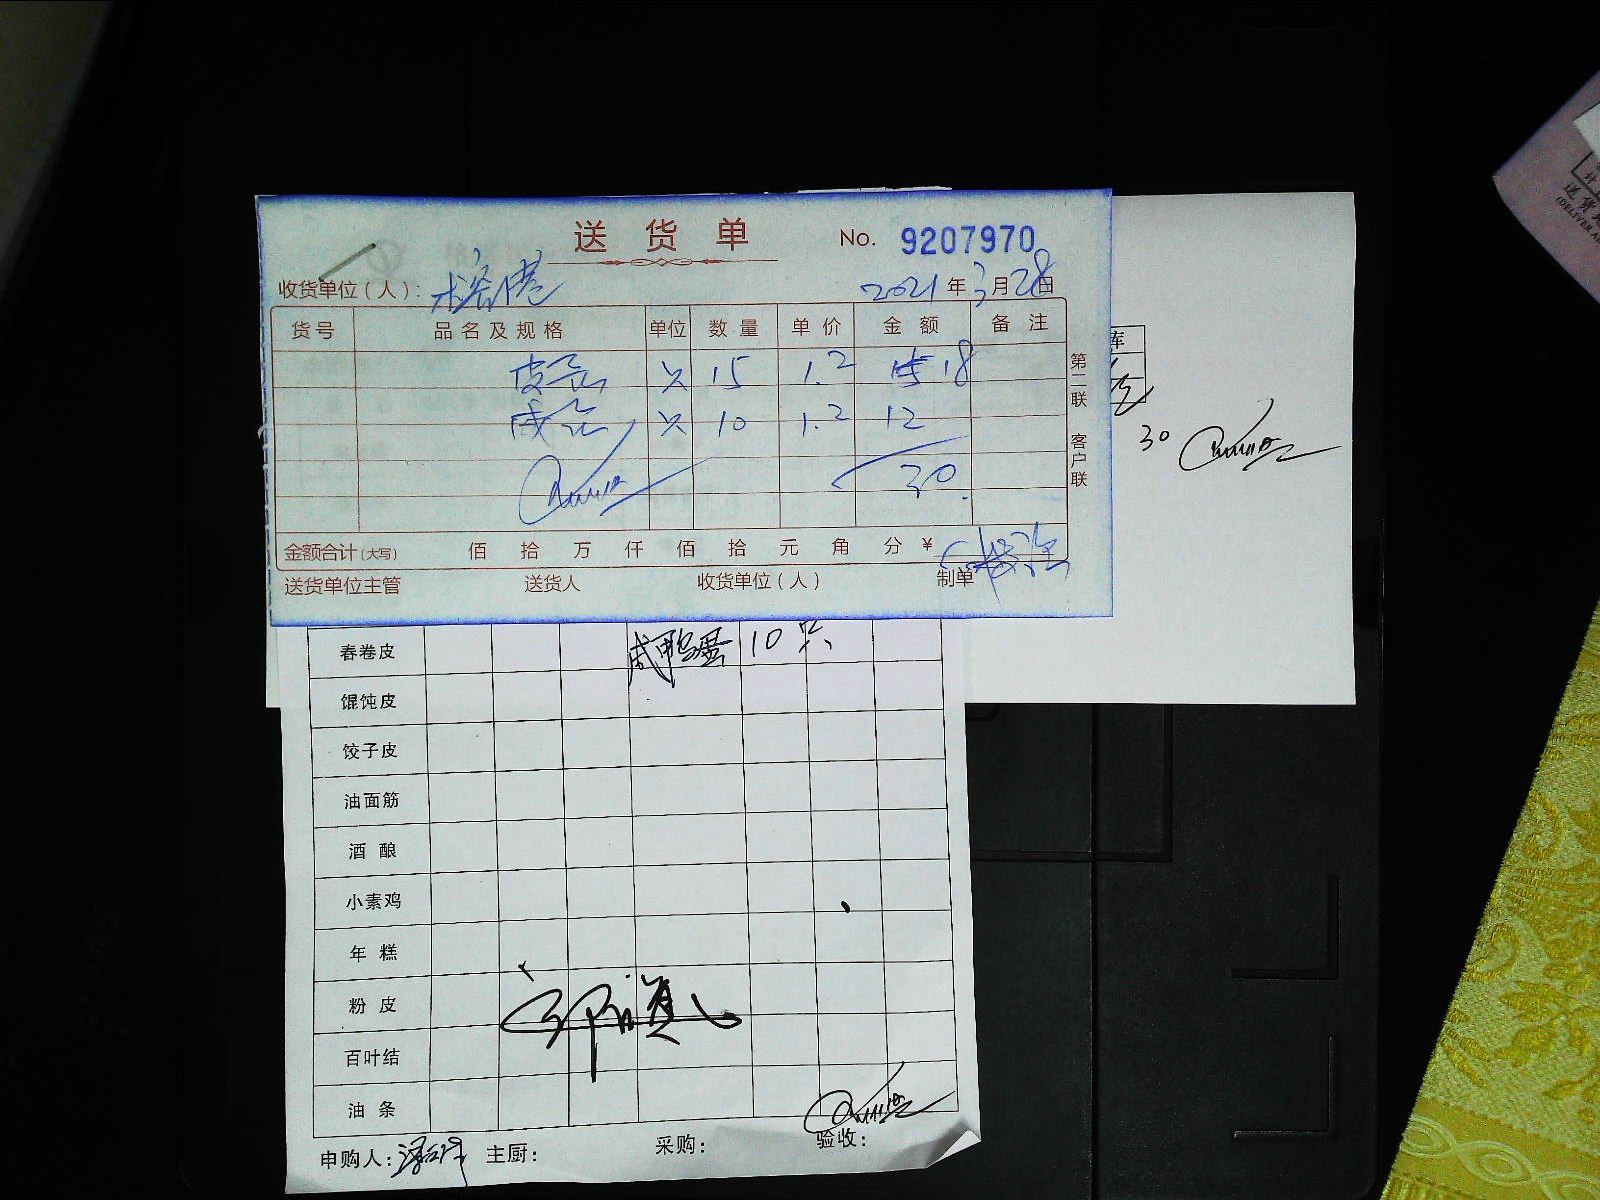 送货单 No. 9207970
收货单位(人): 榕港 2021年3月28日
货号 品名及规格 单位 数量 单价 金额 备注
皮蛋 只 15 1.2 18
咸蛋 只 10 1.2 12
30
金额合计(大写) 佰 拾 万 仟 佰 拾 元 角 分 ¥
送货单位主管 送货人 收货单位(人) 制单
第二联 客户联
库
30
春卷皮 咸鸭蛋 10 只
馄饨皮
饺子皮
油面筋
酒酿
小素鸡
年糕
粉皮
百叶结
油条
申购人: 主厨: 采购: 验收: